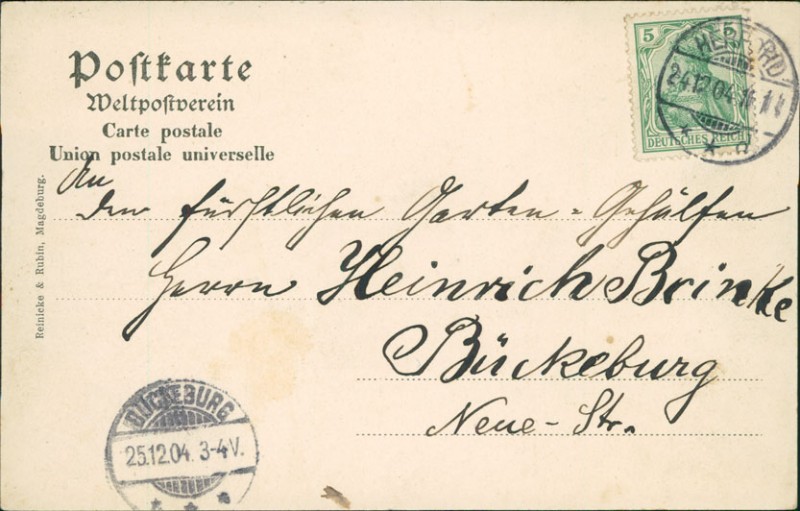 Postkarte
Weltpostverein
Carte postale
Union postale universelle
5 5
DEUTSCHES REICH
HERFORD
24.12.04.
An
den fürstlichen Garten-Gehülfen
Herrn Heinrich Brinke
Bückeburg
Neue-Str.
Reinicke & Rubin, Magdeburg.
BÜCKEBURG
25.12.04. 3-4V.